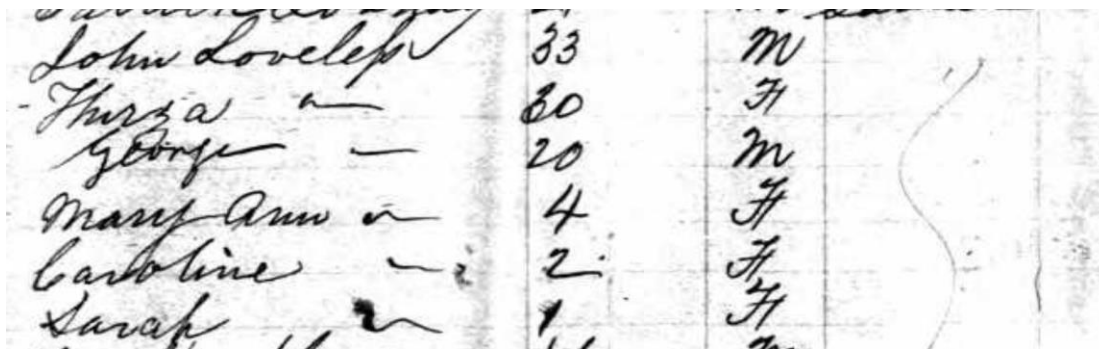 John Loveless 33 M
Thirza " 30 F
George " 20 M
Mary Ann " 4 F
Caroline " 2 F
Sarah " 1 F